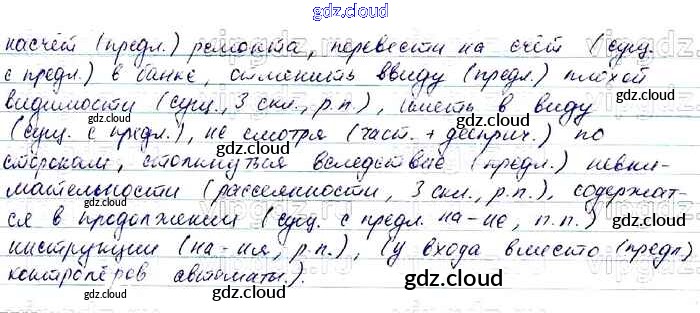 gdz.cloud
насчёт (предл.) ремонта, перевести на счёт (сущ.
с предл.) в банке, отменить ввиду (предл.) плохой
видимости (сущ., 3 скл., р.п.), иметь в виду
(сущ. с предл.), не смотря (част. + дееприч.) по
сторонам, столкнуться вследствие (предл.) невни-
мательности (рассеянности, 3 скл., р.п.), содержат-
ся в продолжении (сущ. с предл. на -ие, п.п.)
инструкции (на -ия, р.п.), (у входа вместо (предл.)
контролёров автоматы.).
gdz.cloud
gdz.cloud
gdz.cloud
gdz.cloud
gdz.cloud